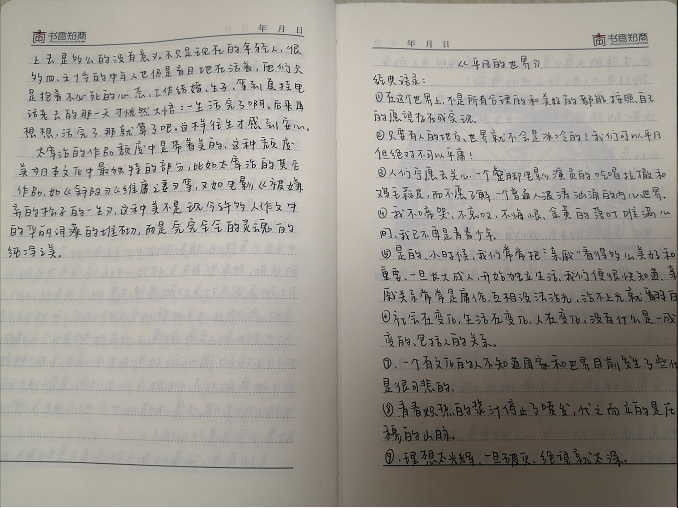 书香知商
年 月 日
上去是那么的没有意义。不只是现在的年轻人，很
多四、五十岁的中年人也仍是盲目地在活着，他们只
是抱着不必死的心态，工作结婚、生子，等到真接电
话死去的那一天才恍然大悟：一生活完了啊，后来再
想想，活完了，那就算了吧，这样往生才感到安心。
太宰治的作品颓废中是带着美的，这种颓废
美如日本文化中最独特的部分，比如太宰治的其它
作品，如《斜阳》《维庸之妻》等，又如电影《被嫌
弃的松子的一生》，这种美不是现今年轻人作文中
的华丽词藻的堆砌，而是完完全全的灵魂的
纯净之美。
年 月 日
书香知商
《平凡的世界》
经典语录：
①在这个世界上，不是所有合理的和美好的都能按照自己
的愿望存在或实现。
②只要有人的地方，世界就不会是冰冷的！我们可以平凡
但绝对不可以平庸！
③人们宁愿去关心一个蹩脚电影演员的吃喝拉撒和
鸡毛蒜皮，而不愿了解一个普通人波涛汹涌的内心世界。
④我不哼哭，不哀叹，不悔恨，金黄的落叶堆满心
间，我已不再是青春少年。
⑤是的，小时候，我们常常把"亲戚"看得那么美好和
重要，一旦长大成人，开始独立生活，我们便很快知道，亲
戚关系常常是庸俗，互相设法沾光，沾不上光就翻白
⑥社会在变化，生活在变化，人在变化，没有什么是一成
变的，包括人的关系。
⑦一个有文化的人不知道国家和世界目前发生了些什
是很可悲的。
⑧青春炽热的浆汁停止了喷发，代之而立的是庄
穆的山脉。
⑨理想太光辉，一旦破灭，绝望就太深。